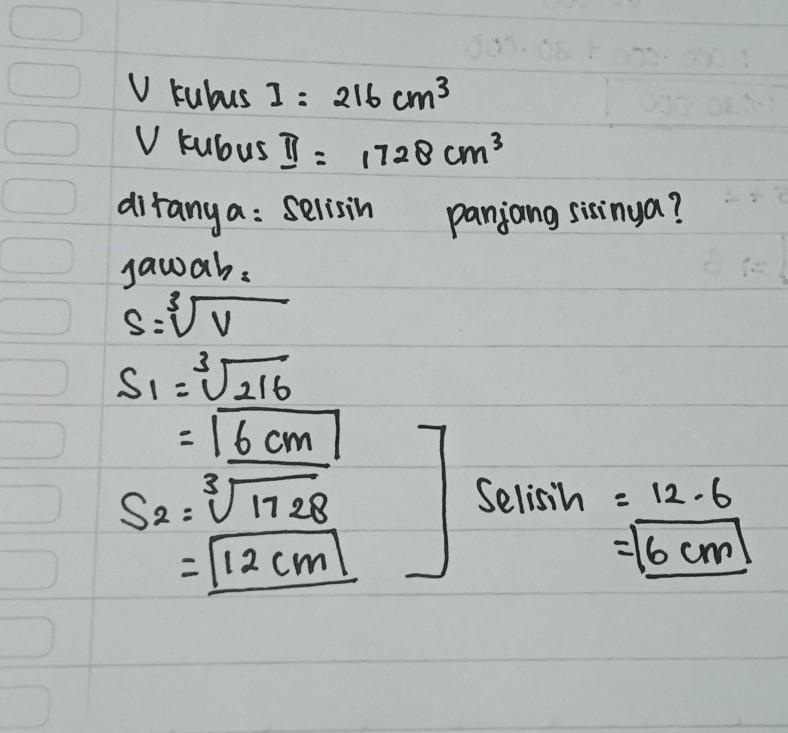 V kubus I = 216 cm³
V kubus II = 1728 cm³
ditanya: Selisih panjang sisinya?
jawab:
S = ∛V
S1 = ∛216
= 6 cm
S2 = ∛1728
= 12 cm
Selisih = 12 - 6
= 6 cm